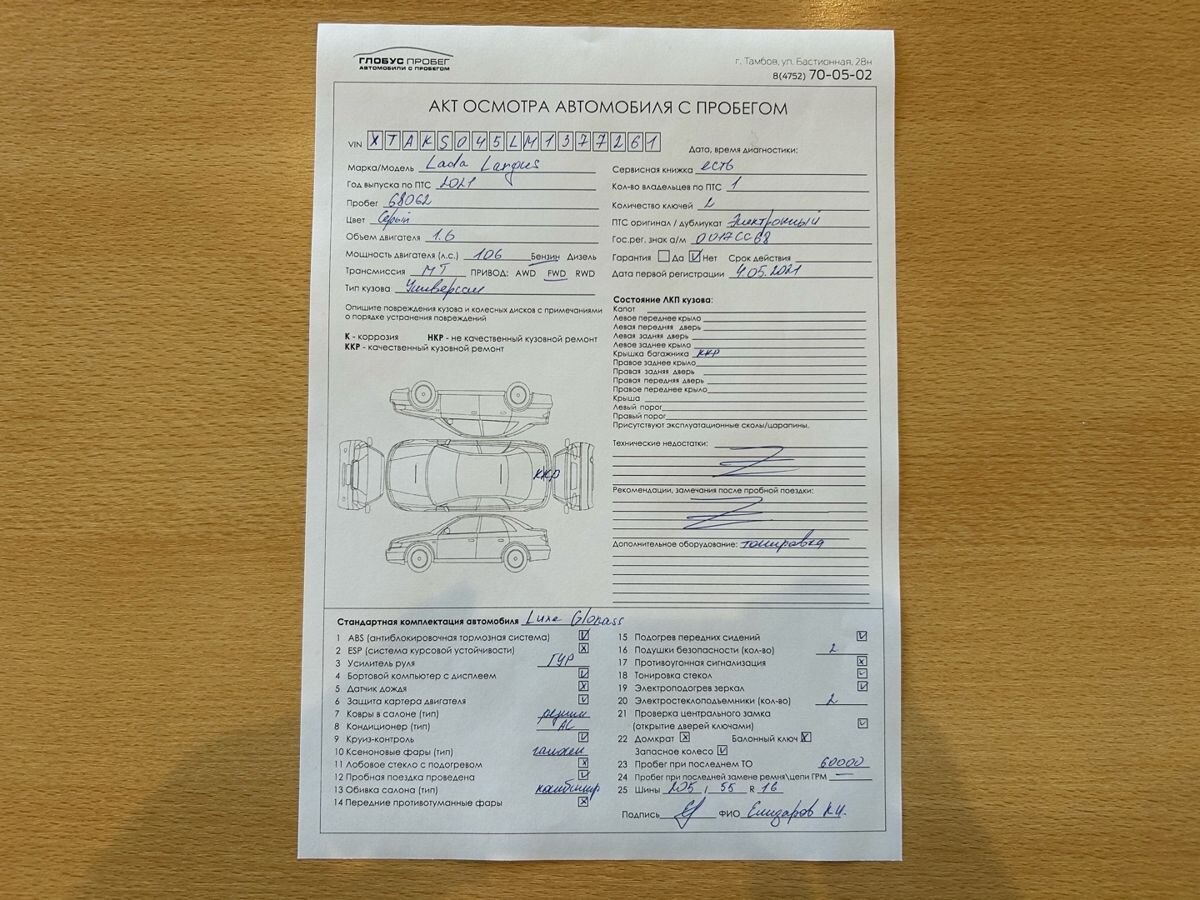 ГЛОБУС ПРОБЕГ
АВТОМОБИЛИ С ПРОБЕГОМ
г. Тамбов, ул. Бастионная, 28н
8(4752) 70-05-02
АКТ ОСМОТРА АВТОМОБИЛЯ С ПРОБЕГОМ
VIN XTAKS045LM1377261
Дата, время диагностики:
Марка/Модель Lada Largus
Год выпуска по ПТС 2021
Пробег 68062
Цвет Серый
Объем двигателя 1.6
Мощность двигателя (л.с.) 106 Бензин Дизель
Трансмиссия МТ ПРИВОД: AWD FWD RWD
Тип кузова Универсал
Сервисная книжка есть
Кол-во владельцев по ПТС 1
Количество ключей 2
ПТС оригинал / дубликат Электронный
Гос.рег. знак а/м О017СС68
Гарантия Да Нет Срок действия
Дата первой регистрации 4.05.2021
Опишите повреждения кузова и колесных дисков с примечаниями
о порядке устранения повреждений
К - коррозия НКР - не качественный кузовной ремонт
ККР - качественный кузовной ремонт
ККР
Состояние ЛКП кузова:
Капот
Левое переднее крыло
Левая передняя дверь
Левая задняя дверь
Левое заднее крыло
Крышка багажника ККР
Правое заднее крыло
Правая задняя дверь
Правая передняя дверь
Правое переднее крыло
Крыша
Левый порог
Правый порог
Присутствуют эксплуатационные сколы/царапины.
Технические недостатки:
Рекомендации, замечания после пробной поездки:
Дополнительное оборудование: тонировка
Стандартная комплектация автомобиля Luxe Glonass
1 ABS (антиблокировочная тормозная система)
2 ESP (система курсовой устойчивости)
3 Усилитель руля ГУР
4 Бортовой компьютер с дисплеем
5 Датчик дождя
6 Защита картера двигателя
7 Ковры в салоне (тип) резин
8 Кондиционер (тип) AC
9 Круиз-контроль
10 Ксеноновые фары (тип) галоген
11 Лобовое стекло с подогревом
12 Пробная поездка проведена
13 Обивка салона (тип) комбинир
14 Передние противотуманные фары
15 Подогрев передних сидений
16 Подушки безопасности (кол-во) 2
17 Противоугонная сигнализация
18 Тонировка стекол
19 Электроподогрев зеркал
20 Электростеклоподъемники (кол-во) 2
21 Проверка центрального замка
(открытие дверей ключами)
22 Домкрат Балонный ключ
Запасное колесо
23 Пробег при последнем ТО 60000
24 Пробег при последней замене ремня\цепи ГРМ —
25 Шины 205 / 55 R 16
Подпись ФИО